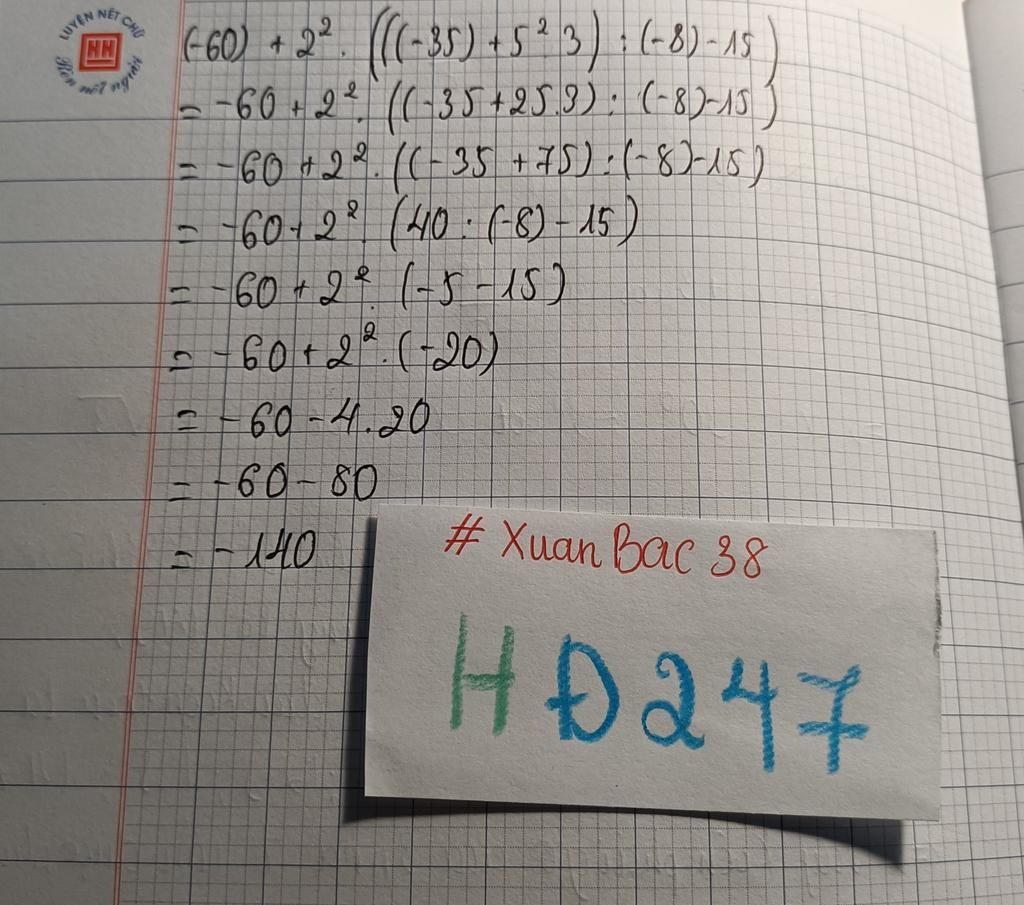 LUYỆN NÉT CHỮ
HH
Rèn nết người
(-60) + 2². (((-35) + 5² 3) : (-8) - 15)
= -60 + 2². ((-35 + 25.3) : (-8) - 15)
= -60 + 2². ((-35 + 75) : (-8) - 15)
= -60 + 2². (40 : (-8) - 15)
= -60 + 2². (-5 - 15)
= -60 + 2². (-20)
= -60 - 4.20
= -60 - 80
= -140
# XuanBac 38
HĐ247